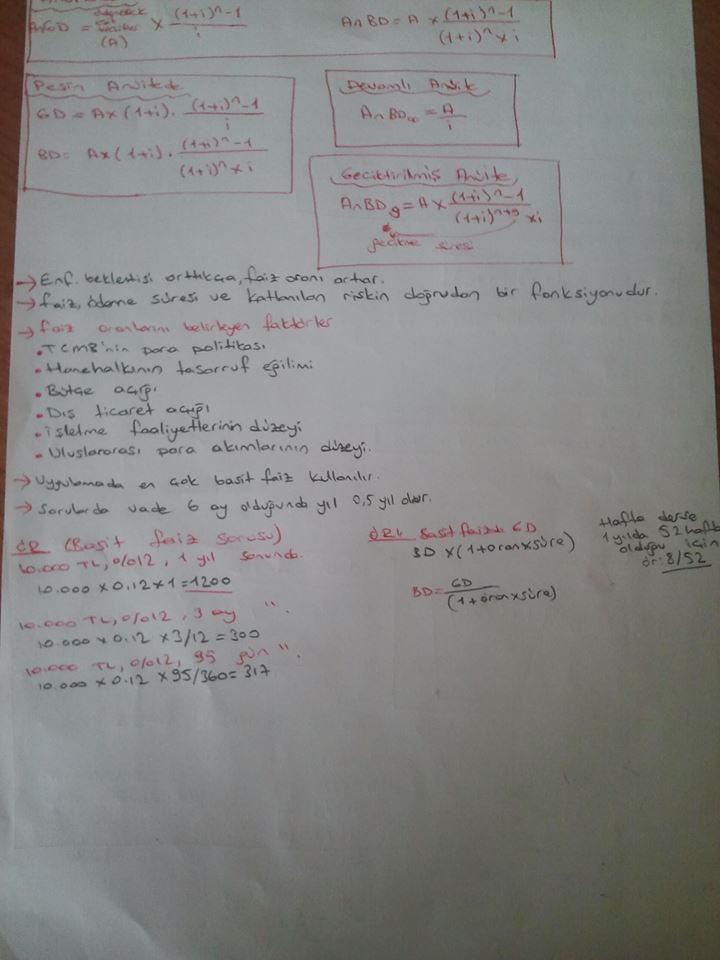 AnGD = × (1+i)^n-1 / i
(A)
AnBD = A × (1+i)^n-1 / (1+i)^n × i
Peşin Anüitede
GD = A×(1+i). (1+i)^n-1 / i
BD = A×(1+i). (1+i)^n-1 / (1+i)^n × i
Devamlı Anüite
AnBD∞ = A / i
Geciktirilmiş Anüite
AnBDg = A × (1+i)^n-1 / (1+i)^n+g × i
gecikme süresi
→ Enf. beklentisi arttıkça, faiz oranı artar.
→ faiz, ödeme süresi ve katlanılan riskin doğrudan bir fonksiyonudur.
→ faiz oranlarını belirleyen faktörler
• TCMB'nin para politikası
• Hanehalkının tasarruf eğilimi
• Bütçe açığı
• Dış ticaret açığı
• işletme faaliyetlerinin düzeyi
• Uluslararası para akımlarının düzeyi.
→ Uygulamada en çok basit faiz kullanılır.
→ Sorularda vade 6 ay olduğunda yıl 0,5 yıl olur.
ÖR (Basit faiz sorusu)
10.000 TL, %12, 1 yıl sonunda.
10.000 × 0.12 × 1 = 1200
10.000 TL, %12, 3 ay ".
10.000 × 0.12 × 3/12 = 300
10.000 TL, %12, 95 gün ".
10.000 × 0.12 × 95/360 = 317
ÖR: Basit faizde GD
BD × (1+oran×süre)
BD = GD / (1+oran×süre)
Hafta derse
1 yılda 52 hafta
olduğu için
ör: 8/52